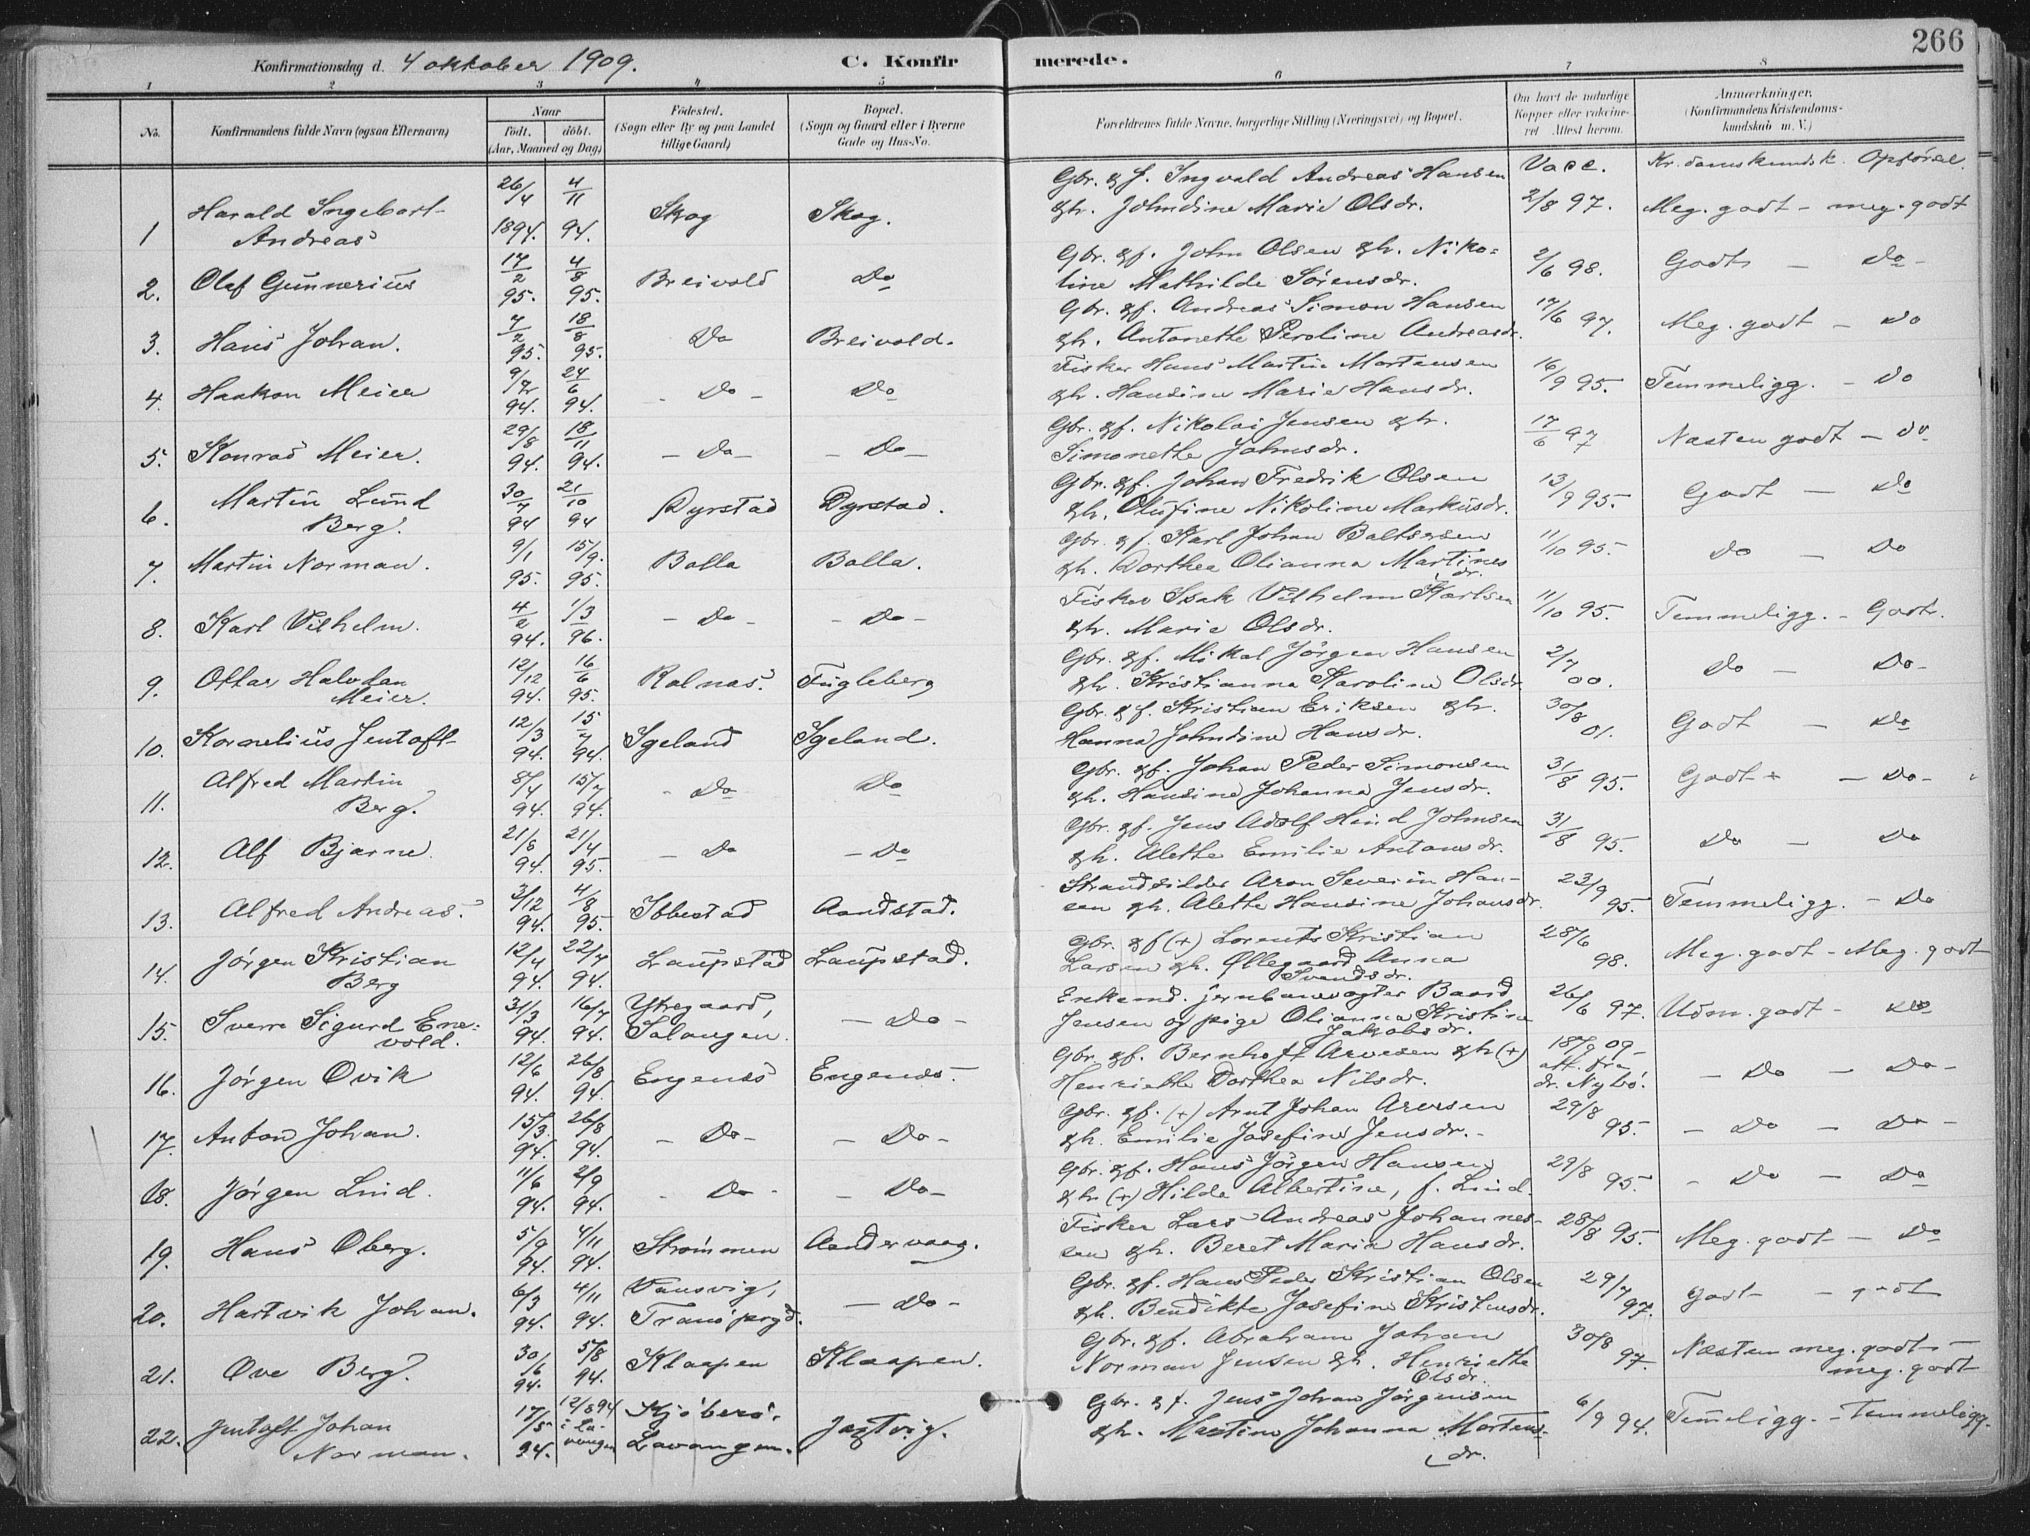 266
Konfirmationsdag d. 4 oktober 1909.
C. Konfirmerede.
1 2 3 4 5 6 7 8
No. Konfirmandens fulde Navn (ogsaa Efternavn) Naar født. døbt. (Aar, Maaned og Dag) Födested. (Sogn eller By og paa Landet tillige Gaard) Bopæl. (Sogn og Gaard eller i Byerne Gade og Hus-No. Forældrenes fulde Navne, borgerlige Stilling (Næringsvei) og Bopæl. Om havt de naturlige Kopper eller vaccineret Attest herom. Anmærkninger. (Konfirmandens Kristendomskundskab m. V.)
Vacc. Kr.domskundsk. Opførsel
1 Harald Ingebart Andreas 26/4 1894. 4/11 94. Skog Skog. Gbr. gf. Ingvald Andreas Hansen gh. Johndine Marie Olsdr. 2/8 97. Meg. godt – meg. godt
2. Olaf Gunnerius 17/2 95. 4/8 95. Breivold Do Gbr. gf. John Olsen gh. Nikoline Mathilde Sørensdr. 2/6 98. Godt – Do –
3. Hans Johan. 7/2 95. 18/8 95. Do Breivold. Gbr. gf. Andreas Simon Hansen gh. Antonette Peroline Andreasdr. 17/6 97. Meg. godt – Do
4. Haakon Meier 9/ 94. 24/6 94. – Do – Do Fisker Hans Martin Mortensen gh. Hansine Marie Hansdr. 16/9 95. Temmeligg. – Do
5. Konrad Meier. 29/8 94. 18/11 94. – Do – – Do – Gbr. gf. Nikolai Jensen gh. Simonette Johnsdr. 17/6 97 Næsten godt – Do
6. Martin Lund Berg. 30/7 94 21/10 94 Dyrstad Dyrstad. Gbr. gf. Johan Fredrik Olsen gh. Olufine Nikoline Markusdr. 13/9 95. Godt – Do
7. Martin Norman. 9/1 95. 15/9. 95. Bolla Bolla. Gbr. gf. Karl Johan Baltsersen gh. Dorthea Olianna Martinesdr. 11/10 95. Do – Do
8. Karl Vilhelm. 4/2 94. 1/3 96. – Do – – Do – Fisker Isak Vilhelm Karlsen gh. Marie Olsdr. 11/10 95. Temmeligg. – Godt.
9. Ottar Halvdan Meier. 12/12 94. 16/6 95. Rolnæs. Fugleberg Gbr. gf. Mikal Jørgen Hansen gh. Kristianna Karoline Olsdr 2/7 00. Do – Do –
10. Kornelius Jentoft 12/3 94. 15/7 94. Igeland Igeland. Gbr. gf. Kristian Eriksen gh. Hanna Johndine Hansdr. 30/8 01. Godt – Do
11. Alfred Martin Berg. 8/4 94. 15/7 94. – Do Do Gbr. gf. Johan Peder Simonsen gh. Hansine Johanna Jensdr. 31/8 95. Godt – Do –
12. Alf Bjarne. 21/8 94. 21/4 95. – Do – Do Gbr. gf. Jens Adolf Hind Johnsen gh. Alette Emilie Antonsdr. 31/8 95. Do – Do
13. Alfred Andreas. 3/12 94. 4/8 95. Ibbestad Aandstad. Strandsidder Aron Severin Hansen gh. Alette Hansine Johansdr. 23/9 95. Temmeligg. – Do
14. Jørgen Kristian Berg 12/4 94. 22/7 94. Laupstad Laupstad. Gbr. gf (+) Lorents Kristian Larsen gh. Øllegaard Anna Svendsdr. 28/6 98. Meg. godt – Meg. godt
15. Sverre Sigurd Enevold. 31/3 94. 16/7 94. Ytregaard, Salangen. – Do – Enkemd. jernbanevogter Baard Jensen og pige Olianna Kristine Jakobsdr. 26/6 97. Udm. godt – Do
16. Jørgen Ovik 12/6 94. 26/8 94. Engenæs Engenæs. Gbr. gf. Bernhoft Arvesen gh (+) Henriette Dorthea Nilsdr. 18/9 09 – att. fra dr. Nybø. – Do – Do –
17. Anton Johan. 15/3. 94. 26/8 94. – Do – – Do – Gbr. gf. (+) Arnt Johan Arvesen gh. Emilie Josefine Jensdr. – 29/8 95. – Do – Do –
18. Jørgen Lind. 11/6 94. 2/9 94. – Do – – Do – Gbr. gf. Hans Jørgen Hansen gh (+) Hilde Albertine, f. Lind. 29/8 95. – Do – Do
19. Hans Oberg. 5/9 94. 4/11 94. Strømmen Aandervaag. Fisker Lars Andreas Johannessen gh. Beret Maria Hansdr. 28/8 95. Meg. godt – Do
20. Hartvik Johan. 6/3 94. 4/11 94. Vansvig, Tranø prgd. – Do – Gbr. gf. Hans Peder Kristian Olsen gh. Bendikte Josefine Kristensdr. 29/7 97. Godt – godt
21. Ove Berg. 30/6 94. 5/8 94. Klaapen Klaapen. Gbr. gf. Abraham Johan Norman Jensen gh. Henriette Olsdr. 30/8 97. Næsten meg. godt – meg. godt
22. Jentoft Johan Norman. 17/5 94. 12/8 94 i Lavangen Kjøberø, Lavangen. Jagtvig. Gbr. gf. Jens Johan Jørgensen gh. Martine Johanna Mortensdr. 6/9 94. Temeligg. – Temmeligg.